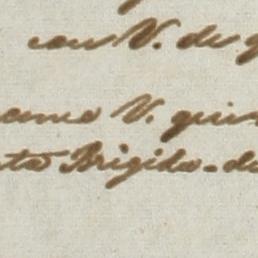 con V. de g
amo V. quin
ta Brigida. de